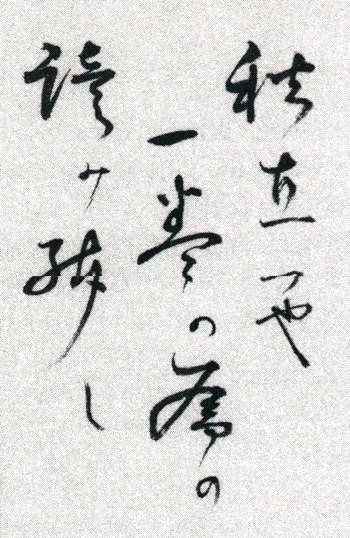 秋立つや
一巻の書の
読み残し